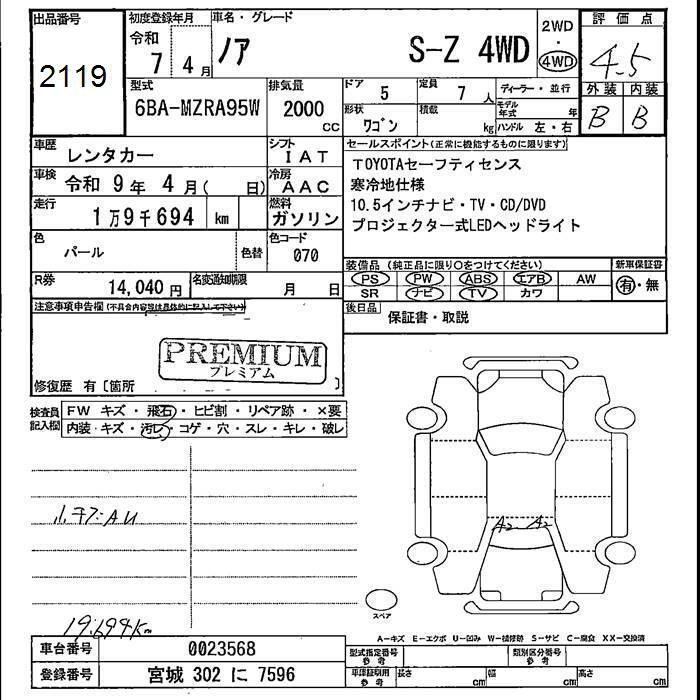 出品番号
2119
初度登録年月
令和
7 4 月
車名・グレード
ノア S-Z 4WD
2WD
・
4WD
評価点
4.5
外装 内装
B B
型式
6BA-MZRA95W
排気量
2000
CC
ドア 5
定員 7 人
形状 ワゴン
積載 kg
ディーラー・並行
モデル年式 年
ハンドル 左・右
車歴 レンタカー
シフト IAT
車検 令和 9 年 4 月 ( 日)
冷房 AAC
走行 1万9千694 km
燃料 ガソリン
色 パール 色替
色コード 070
R券 14,040 円
名変通知期限 月 日
セールスポイント(正常に機能するものに限ります)
TOYOTAセーフティセンス
寒冷地仕様
10.5インチナビ・TV・CD/DVD
プロジェクター式LEDヘッドライト
装備品(純正品に限り○をつけてください)
PS PW ABS エアB AW
SR ナビ TV カワ
新車保証書
有・無
後日品 保証書・取説
注意事項申告欄(不具合内容等は具体的に記入して下さい)
PREMIUM
プレミアム
修復歴 有〔箇所 〕
検査員
記入欄
FW キズ・飛石・ヒビ割・リペア跡・×要
内装・キズ・汚レ・コゲ・穴・スレ・キレ・破レ
AU
19.694km
A2 A2
スペア
A-キズ E-エクボ U-凹み W-補修跡 S-サビ C-腐食 XX-交換済
車台番号 0023568
登録番号 宮城 302 に 7596
型式指定番号
参考
類別区分番号
参考
車庫証明用
参考
長さ cm 幅 cm 高さ cm